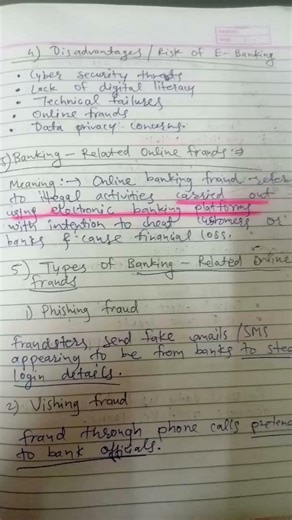 4) Disadvantages / Risk of E-Banking
• Cyber security threats
• Lack of digital literacy
• Technical failures
• Online frauds
• Data privacy concerns.
Banking - Related Online frauds :→
Meaning :→ Online banking fraud refer
to illegal activities carried out
using electronic banking platforms
with intention to cheat customers or
banks & cause financial loss.
5) Types of Banking - Related Online
frauds
1) Phishing fraud
fraudsters send fake emails / SMS
appearing to be from banks to steal
login details.
2) Vishing fraud
fraud through phone calls
to bank officials.